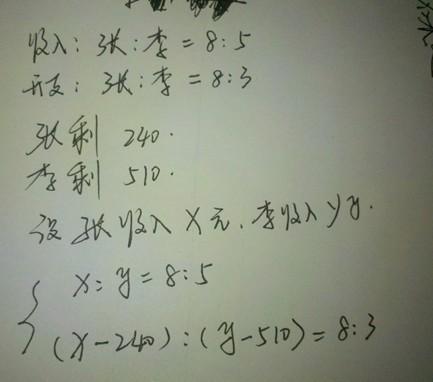 收入：张：李＝8：5
开支：张：李＝8：3
张剩 240.
李剩 510.
设张收入X元.李收入y元.
x：y＝8：5
(x－240)：(y－510)＝8：3